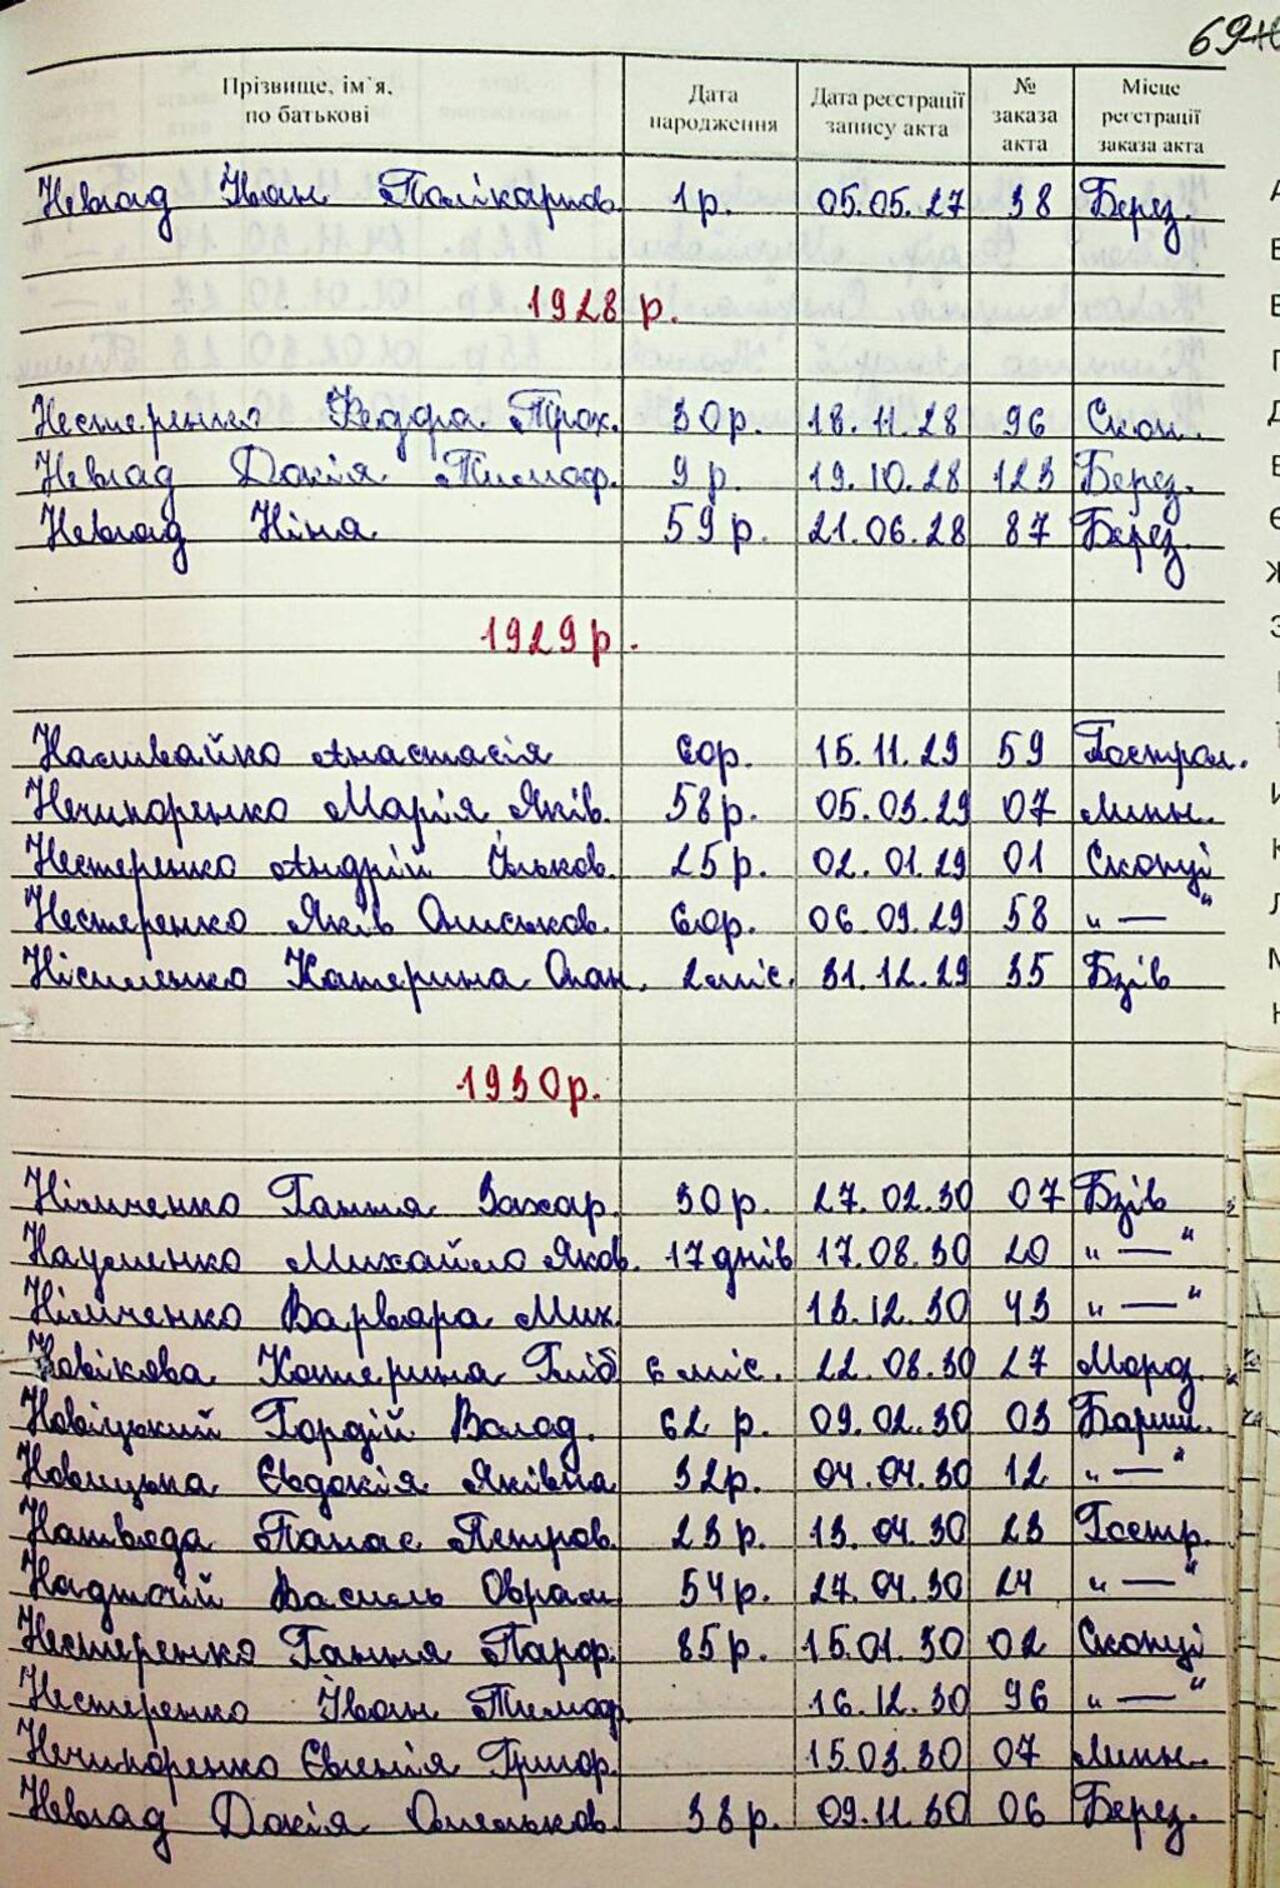 69
Прізвище, ім`я, по батькові Дата народження Дата реєстрації запису акта № заказа акта Місце реєстрації заказа акта
Невлад Іван Полікарпов. 1р. 05.05.27 38 Берез.
1928 р.
Нестеренко Теодора Прох. 30р. 18.11.28 96 Скоп.
Невлад Докія Тимоф. 9 р. 19.10.28 123 Берез.
Невлад Ніна 59 р. 21.06.28 87 Берез.
1929 р.
Наливайко Анастасія 60р. 15.11.29 59 Гострол.
Нечипоренко Марія Яків. 58 р. 05.03.29 07 Липн.
Нестеренко Андрій Ільков. 25 р. 02.01.29 01 Скопці
Нестеренко Яків Описьков. 60р. 06.09.29 58 „ — “
Нісиленко Катерина Опан. 2 міс. 31.12.29 35 Бзів
1930р.
Німченко Ганна Захар. 30 р. 27.02.30 07 Бзів
Науменко Михайло Яков. 17 днів 17.08.30 20 „ — “
Німченко Варвара Мих. 13.12.30 43 „ — “
Новікова Катерина Гліб 6 міс. 22.08.30 27 Мороз.
Новіцький Гордій Волод. 62 р. 09.02.30 03 Бориш.
Новицька Євдокія Яківна 32р. 04.04.30 12 „ — “
Панас Петров. 23 р. 13.04.30 23 Гостр.
Надточій Василь Оврам 54р. 27.04.30 24 „ — “
Нестеренко Ганна Парф. 85р. 15.01.30 02 Скопці
Нестеренко Іван Тимоф. 16.12.30 96 „ — “
Нечипоренко Євгенія Григор. 15.03.30 07 Липн.
Невлад Докія Омельков. 38р. 09.11.30 06 Берез.